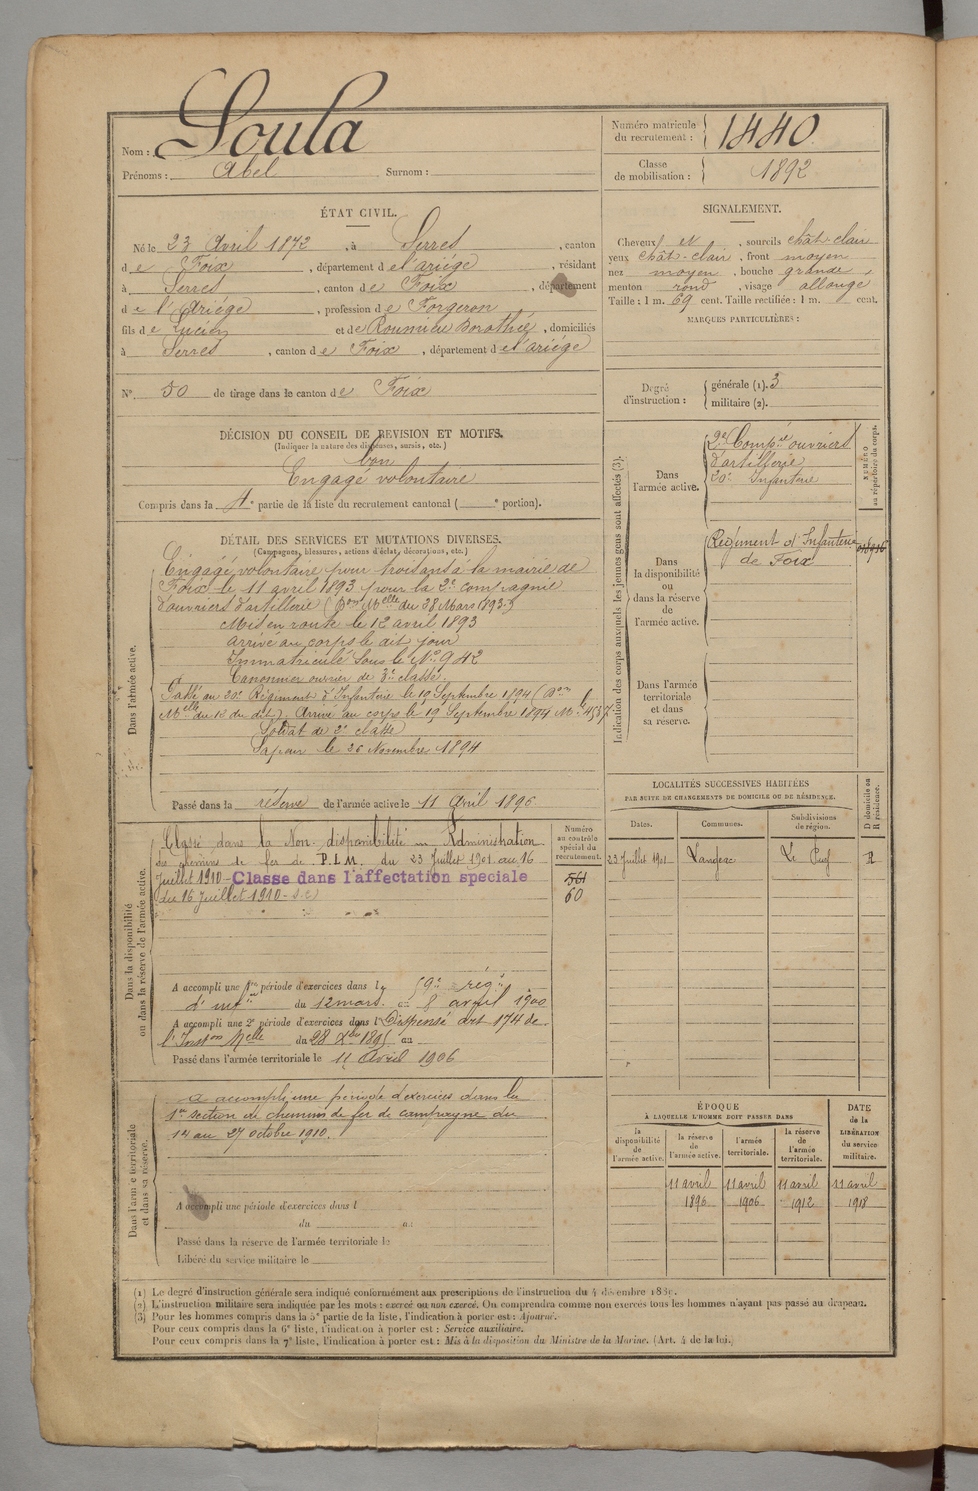 Nom : Soula
Prénoms : Abel Surnom :
Numéro matricule du recrutement : 1440
Classe de mobilisation : 1892
ÉTAT CIVIL.
Né le 23 Avril 1872, à Serres, canton
de Foix, département de l'ariége, résidant
à Serres, canton de Foix, département
de l'Ariége, profession de Forgeron
fils de Lucien et de Roumieu Dorothée, domiciliés
à Serres, canton de Foix, département de l'ariége
N° 50 de tirage dans le canton de Foix
SIGNALEMENT.
Cheveux et, sourcils chât-clair
yeux chât-clair, front moyen
nez moyen, bouche grande,
menton rond, visage allongé
Taille : 1 m. 69 cent. Taille rectifiée : 1 m. cent.
MARQUES PARTICULIÈRES :
Degré d'instruction : générale (1). 3
militaire (2).
DÉCISION DU CONSEIL DE REVISION ET MOTIFS.
(Indiquer la nature des dispenses, sursis, etc.)
bon
Engagé volontaire
Compris dans la 4e partie de la liste du recrutement cantonal ( e portion).
DÉTAIL DES SERVICES ET MUTATIONS DIVERSES.
(Campagnes, blessures, actions d'éclat, décorations, etc.)
Dans l'armée active.
Engagé volontaire pour trois ans à la mairie de
Foix le 11 avril 1893 pour la 2e compagnie
d'ouvriers d'artillerie (Don Melle du 28 Mars 1893)
Mis en route le 12 avril 1893
arrivé au corps le dit jour
Immatriculé sous le No 942
Canonnier ouvrier de 3e classe.
Passé au 20e Régiment d'Infanterie le 19 Septembre 1894 (Don
Melle du 12 du dit). Arrivé au corps le 19 Septembre 1894 Mle 4537
Soldat de 2e classe
Sapeur le 26 Novembre 1894
Passé dans la réserve de l'armée active le 11 Avril 1896
Indication des corps auxquels les jeunes gens sont affectés (3).
NUMÉRO au répertoire du corps.
Dans l'armée active.
2e Compie ouvriers
d'artillerie
20e Infanterie
Dans la disponibilité ou dans la réserve de l'armée active.
Régiment d'Infanterie
de Foix
Dans l'armée territoriale et dans sa réserve.
LOCALITÉS SUCCESSIVES HABITÉES
PAR SUITE DE CHANGEMENTS DE DOMICILE OU DE RÉSIDENCE.
Dates. Communes. Subdivisions de région. D domicile ou R résidence.
23 Juillet 1901 Langeac Le Puy R
Dans la disponibilité ou dans la réserve de l'armée active.
Numéro au contrôle spécial du recrutement.
561
60
Classé dans la Non disponibilité Administration
des chemins de fer de P.L.M. du 23 Juillet 1901 au 16
Juillet 1910 - Classe dans l'affectation speciale
du 16 Juillet 1910 -
A accompli une 1re période d'exercices dans l 9e régt
d'infie du 12 mars au 8 avril 1900
A accompli une 2e période d'exercices dans l Dispensé art 174 de
l'Inston Melle du 28 Xbre 1895 au
Passé dans l'armée territoriale le 11 Avril 1906
Dans l'armée territoriale et dans sa réserve.
a accompli une période d'exercices dans la
1re section de chemins de fer de campagne du
14 au 27 octobre 1910.
A accompli une période d'exercices dans l
du au
Passé dans la réserve de l'armée territoriale le
Libéré du service militaire le
ÉPOQUE
À LAQUELLE L'HOMME DOIT PASSER DANS
DATE de la LIBÉRATION du service militaire.
la disponibilité de l'armée active. la réserve de l'armée active. l'armée territoriale. la réserve de l'armée territoriale.
11 avril 11 avril 11 avril 11 avril
1896 1906 1912 1918
(1) Le degré d'instruction générale sera indiqué conformément aux prescriptions de l'instruction du 4 décembre 1889.
(2) L'instruction militaire sera indiquée par les mots : exercé ou non exercé. On comprendra comme non exercés tous les hommes n'ayant pas passé au drapeau.
(3) Pour les hommes compris dans la 5e partie de la liste, l'indication à porter est : Ajourné.
Pour ceux compris dans la 6e liste, l'indication à porter est : Service auxiliaire.
Pour ceux compris dans la 7e liste, l'indication à porter est : Mis à la disposition du Ministre de la Marine. (Art. 4 de la loi.)